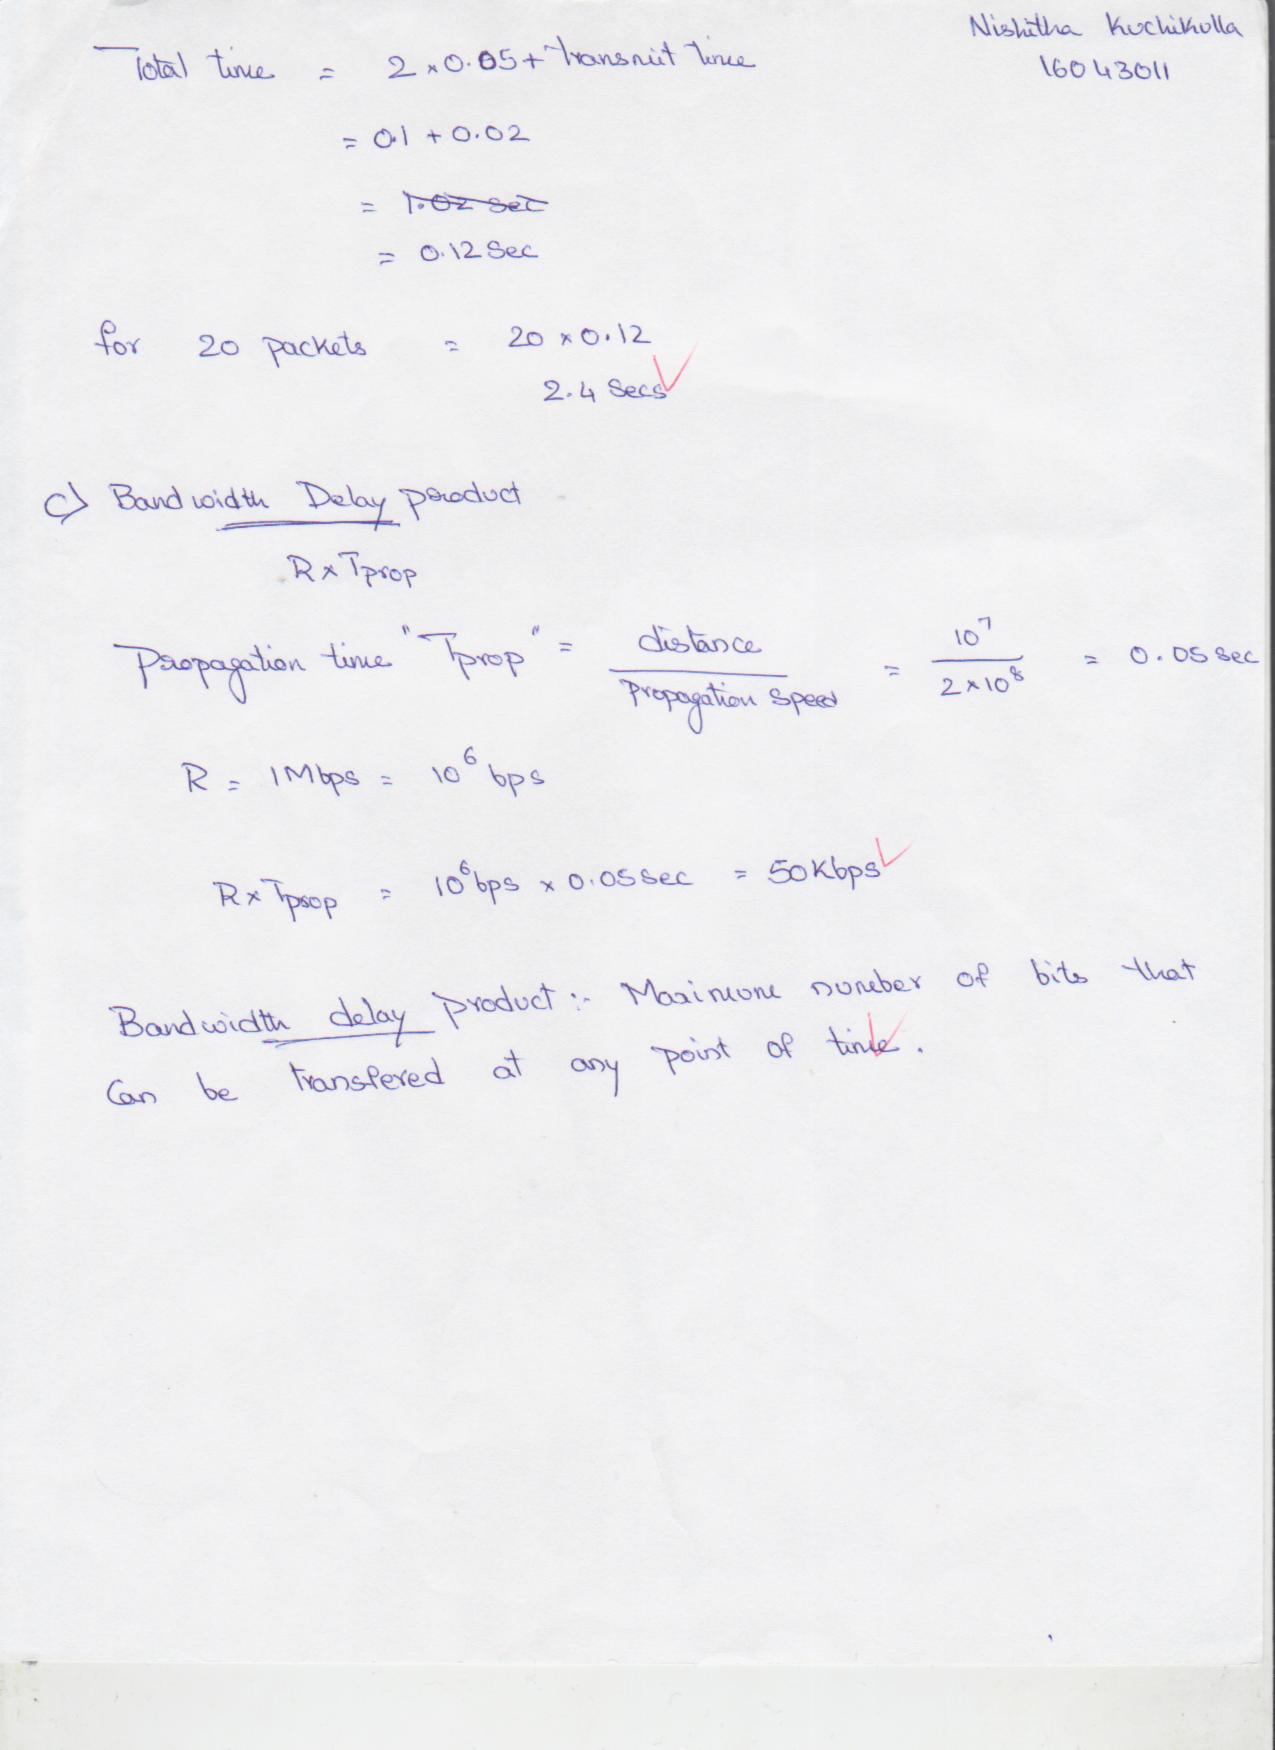 Nishitha Kuchikulla
16043011
Total time = 2 × 0.05 + Transmit time
= 0.1 + 0.02
= 1.02 sec
= 0.12 Sec
for 20 packets = 20 × 0.12
2.4 Secs
c) Bandwidth Delay product
R × Tprop
Propagation time "Tprop" = distance / Propagation Speed = 10⁷ / 2 × 10⁸ = 0.05 sec
R = 1 Mbps = 10⁶ bps
R × Tprop = 10⁶ bps × 0.05 sec = 50 Kbps
Bandwidth delay product :- Maximum number of bits that
Can be transfered at any point of time.